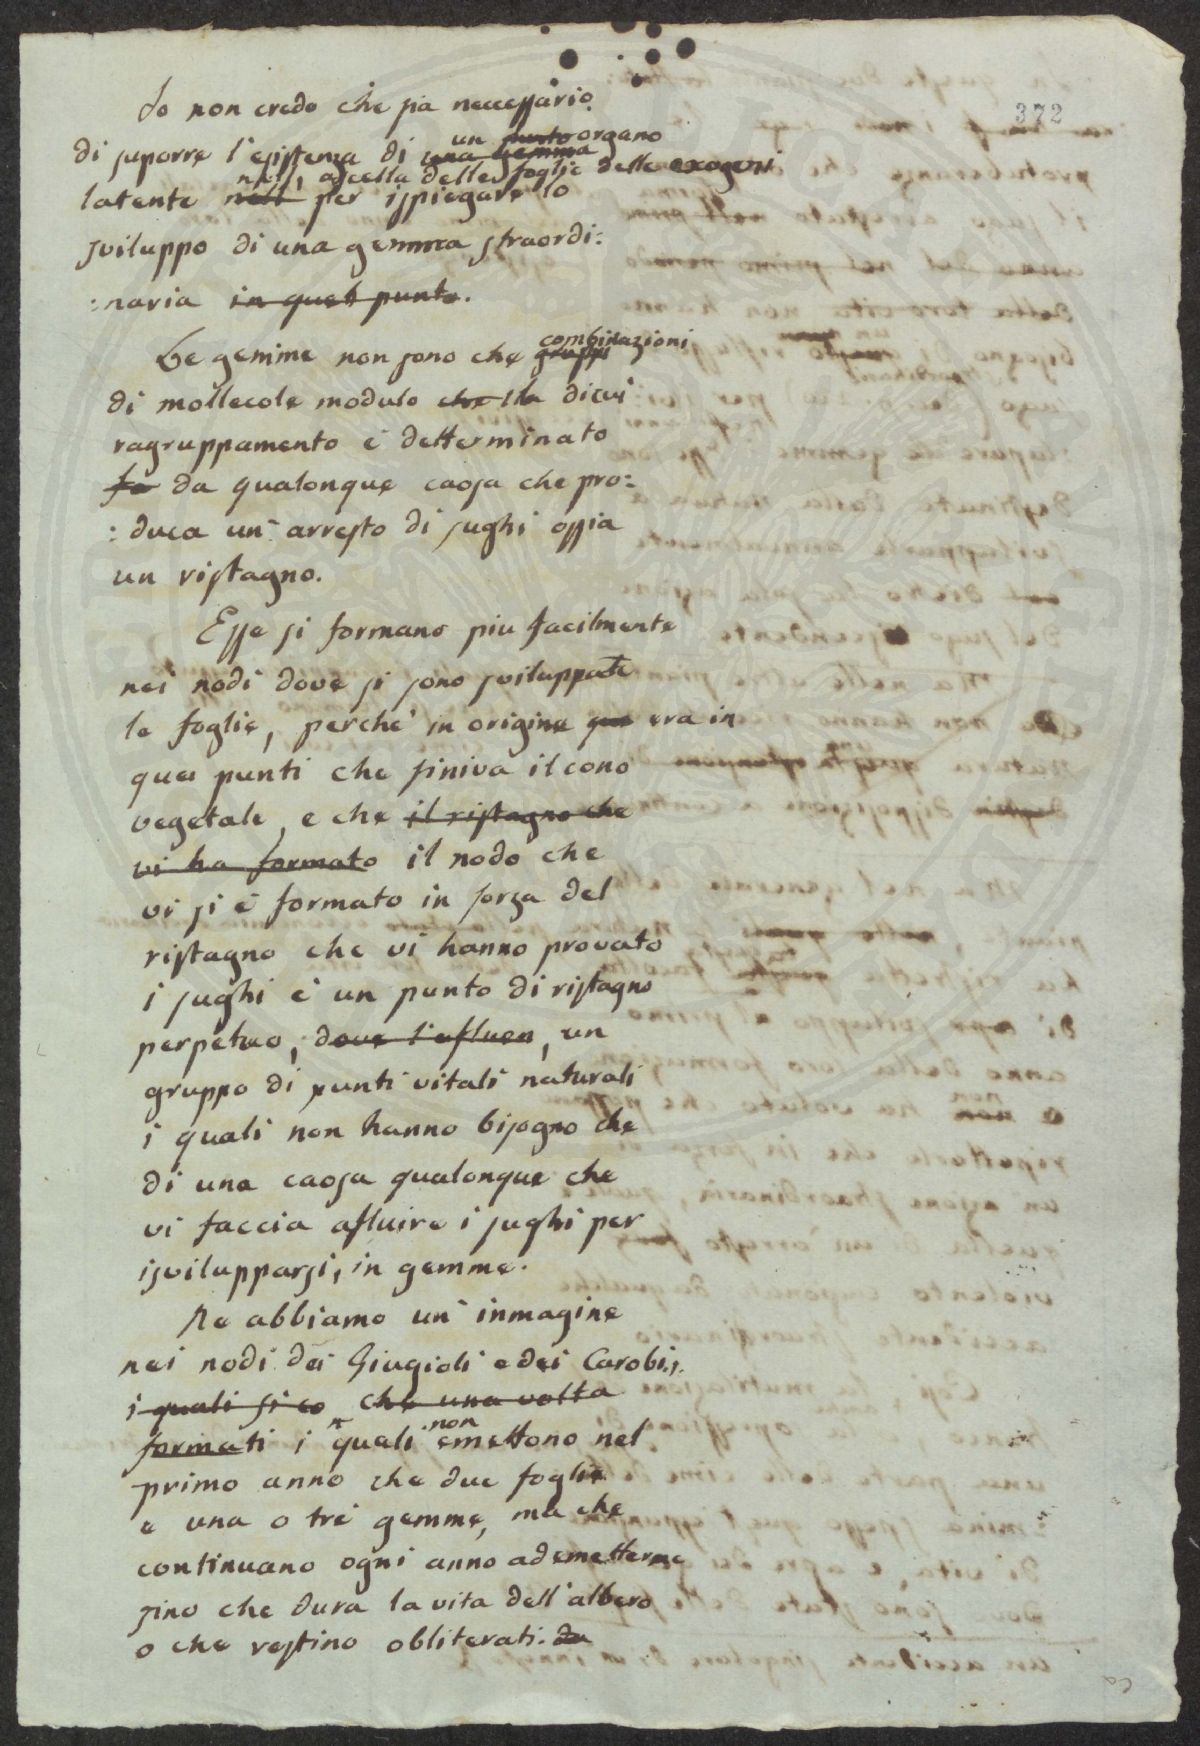 372
Io non credo che sia necessario
di suporre l'esistenza di una gemma un punto organo
latente nell nell'ascella delle foglie delle exogeni per ispiegare lo
sviluppo di una gemma straordi:
:naria in quel punto.
Le gemme non sono che gruppi combinazioni
di mollecole modulo che lla dicui
ragruppamento è determinato
fo da qualonque caosa che pro:
:duca un' arresto di sughi ossia
un ristagno.
Esse si formano piu facilmente
nei nodi dove si sono sviluppate
le foglie, perche' in origine que era in
quei punti che finiva il cono
vegetale, e che il ristagno che
vi ha formato il nodo che
vi si è formato in forza del
ristagno che vi hanno provato
i sughi è un punto di ristagno
perpetuo, dove l'afluen, un
gruppo di punti vitali naturali
i quali non hanno bisogno che
di una caosa qualonque che
vi faccia afluire i sughi per
isvilupparsi, in gemme.
Ne abbiamo un' inmagine
nei nodi dei Giugioli e dei Carobi,
i quali si co che una volta
formati i quali non emettono nel
primo anno che due foglie
e una o tre gemme, ma che
continuano ogni anno ad emetterne
sino che dura la vita dell'albero
o che restino obliterati. da